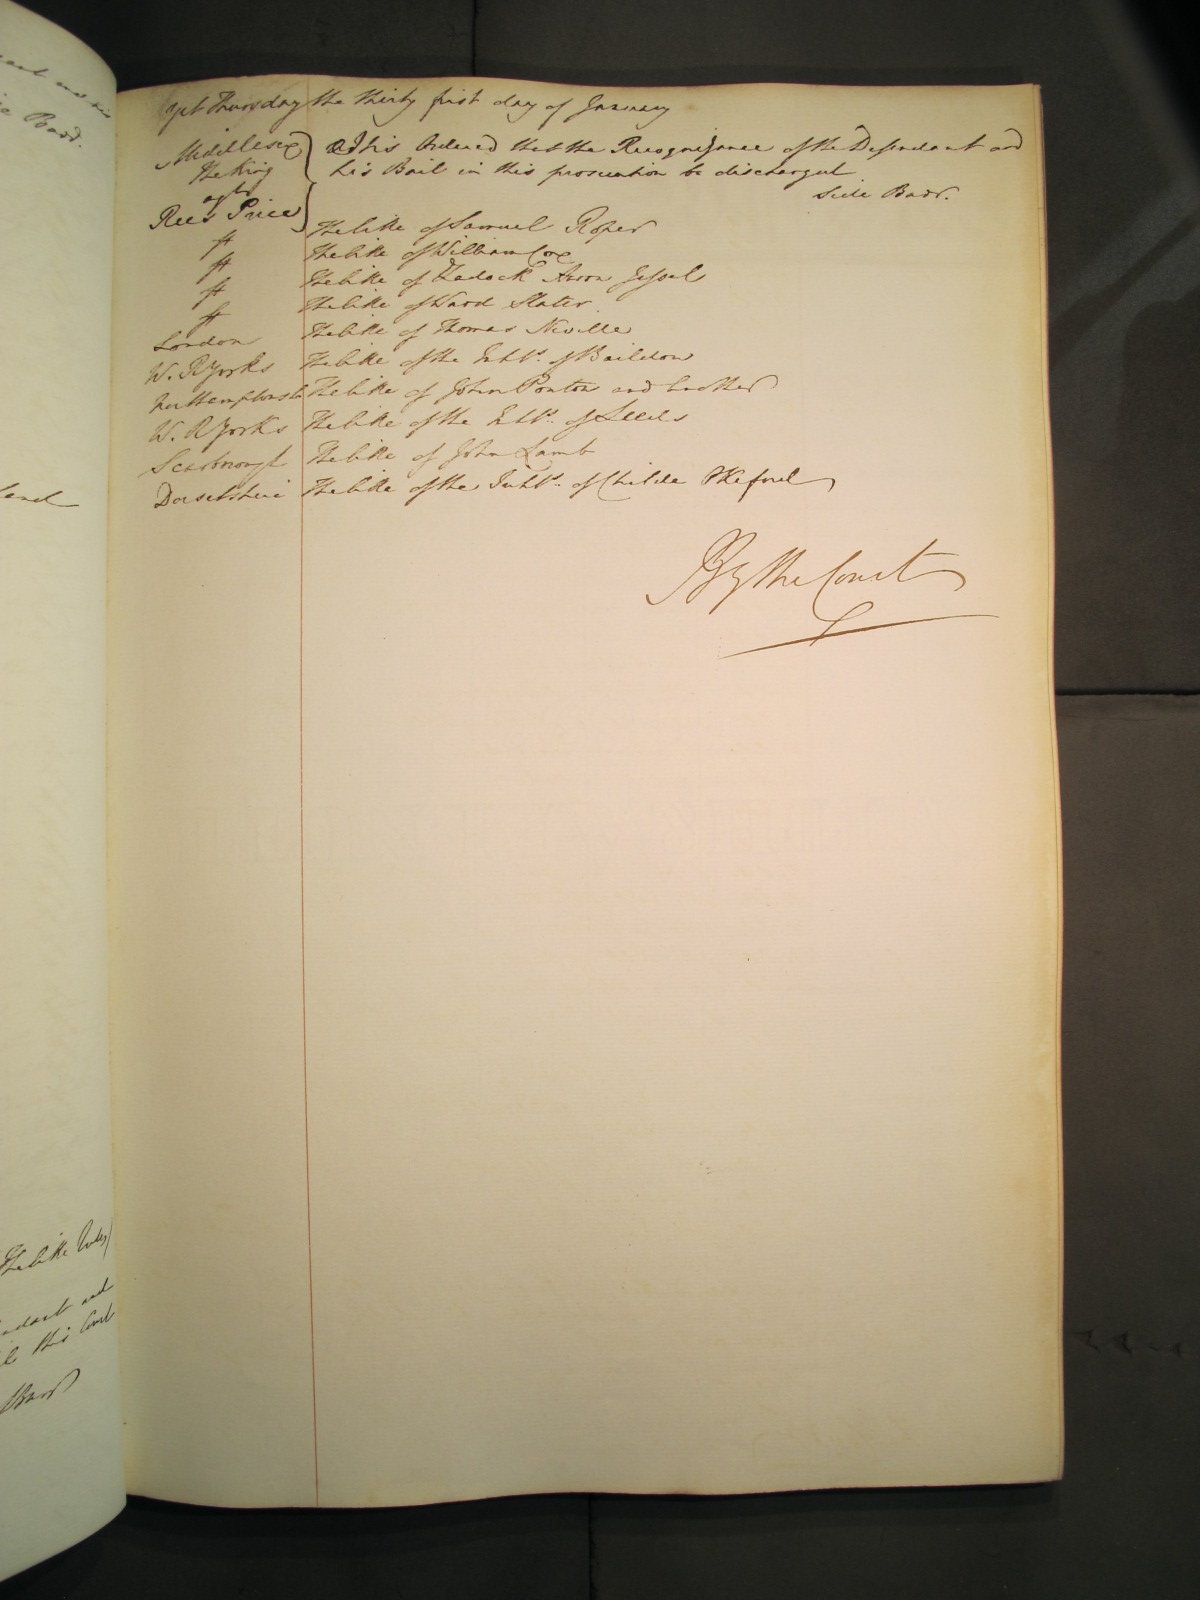 yet Thursday the thirty first day of January
Middlesex It is Ordered that the Recognizance of the Defendant and
The King his Bail in this prosecution be discharged
agt Side Bar.
Rees Price
ff The like of Samuel Roper
ff The like of William Cox
ff The like of Zadock Aaron Jessel
ff The like of Ward Slater
London The like of Thomas Neville
W. R Yorks The like of the Inhts. of Baildon
Northamptonsh The like of John Ponton and another
W. R Yorks The like of the Inhts. of Leeds
Scarborough The like of John Lamb
Dorsetshire The like of the Inhts. of Childe Okeford
By the Court
and his
Bar.
The like Rules
and
this Court
Bar